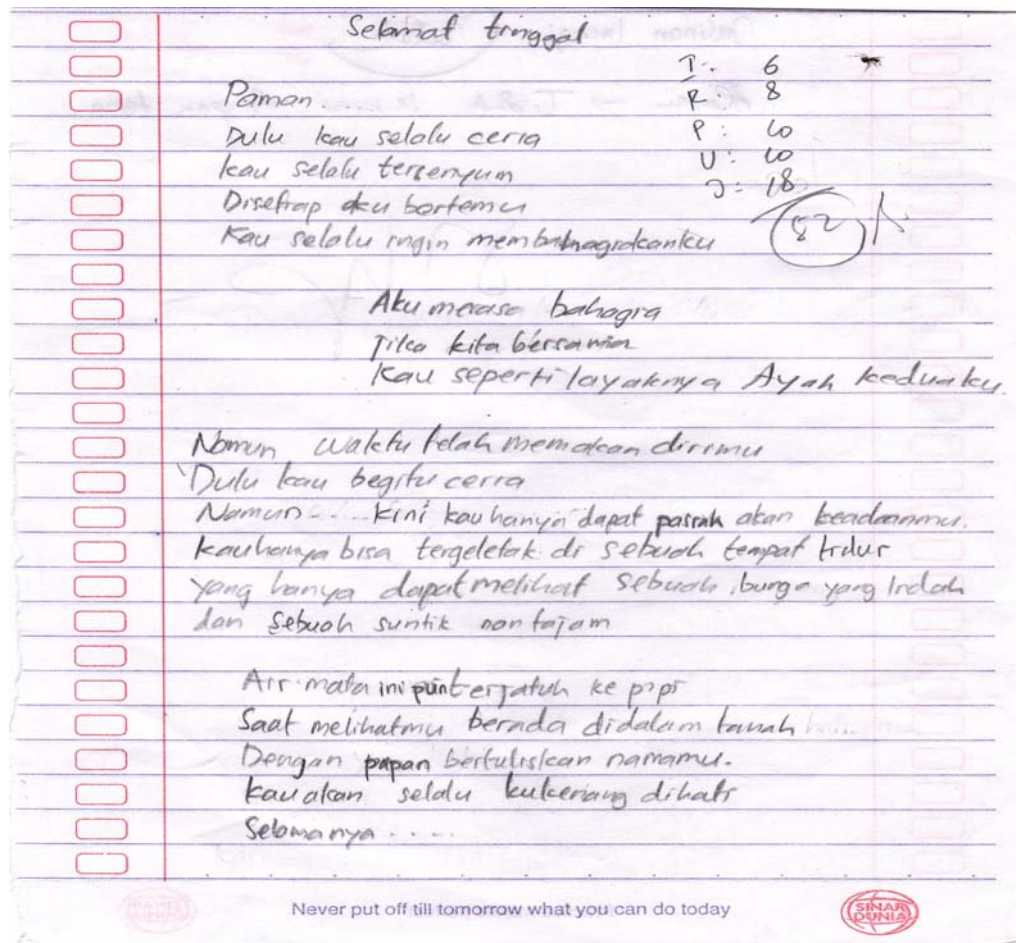 Selamat tinggal
T: 6
Paman R: 8
Dulu kau selalu ceria P: 10
kau selalu tersenyum U: 10
Disetiap aku bertemu J: 18
Kau selalu ingin membahagiakanku 82
Aku merasa bahagia
Jika kita bersama
Kau seperti layaknya Ayah keduaku.
Namun waktu telah memakan dirimu
Dulu kau begitu ceria
Namun.....kini kau hanya dapat pasrah akan keadaanmu.
kau hanya bisa tergeletak di sebuah tempat tidur
yang hanya dapat melihat sebuah bunga yang Indah
dan sebuah suntik nan tajam
Air mata ini pun terjatuh ke pipi
Saat melihatmu berada didalam tanah
Dengan papan bertuliskan namamu.
kau akan selalu kukenang dihati
Selamanya.....
Never put off till tomorrow what you can do today
SINAR DUNIA